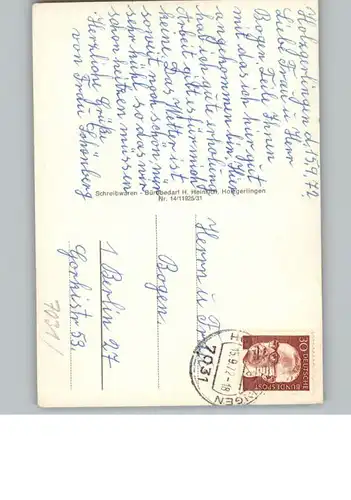 Holzgerlingen d. 15.9.72
Liebe Frau u. Herr
Bogen. Teile Ihnen
mit das ich hier gut
angekommen bin. Hier
hab ich gute erholung
Arbeit gibt es für mich
keine. Das Wetter ist
soweit noch schön nur
sehr kühl so das wir
schon heitzen müssen
Herzliche Grüße
von Frau
Schreibwaren - Bürobedarf H. Heinrich, Holzgerlingen
Nr. 14/11925/31
Herrn u. Fr
Bogen.
1 Berlin 27
Gorkistr 53.
7031
15.9.72-18
7031
30
DEUTSCHE
BUNDESPOST
7031/